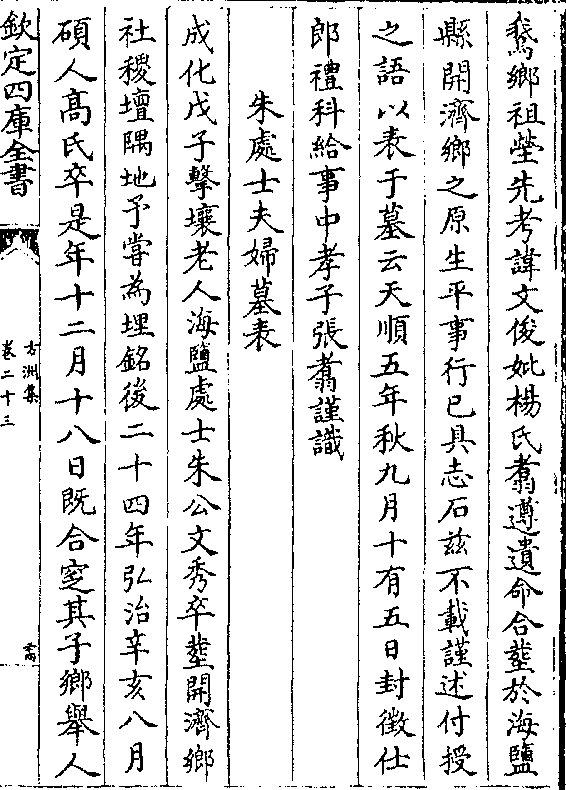 鵞鄉祖塋先考諱文俊妣楊氏翥遵遺命合塟於海鹽
縣開濟鄉之原生平事行已具志石兹不載謹述付授
之語以表于墓云天順五年秋九月十有五日封徵仕
郎禮科給事中孝子張翥謹識
朱處士夫婦墓表
成化戊子擊壤老人海鹽處士朱公文秀卒塟開濟鄉
社稷壇隅地予嘗為埋銘後二十四年弘治辛亥八月
碩人髙氏卒是年十二月十八日既合窆其子鄉舉人
欽定四庫全書
方洲集
卷二十三